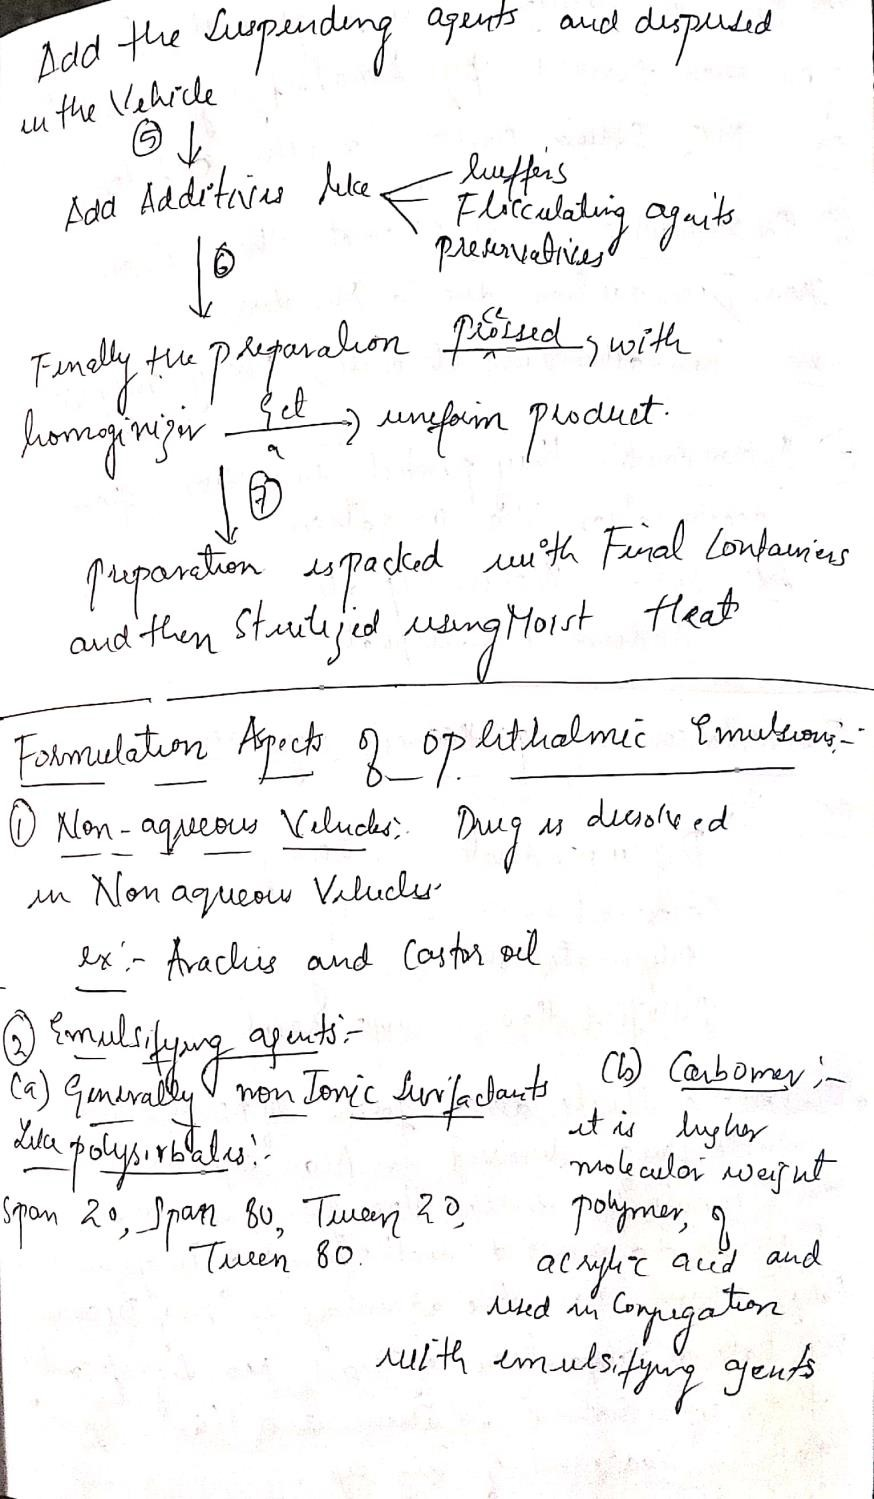 Add the Suspending agents and dispersed
in the Vehicle
⑤
Add Additives like
buffers
Flocculating agents
preservatives
⑥
Finally the preparation processed, with
homoginizer get a uniform product.
⑦
Preparation is packed with Final Containers
and then Sterilized using Moist Heat
Formulation Aspects of ophthalmic Emulsions:-
① Non-aqueous Vehicles:- Drug is dissolved
in Non aqueous Vehicles.
ex:- Arachis and Castor oil
② Emulsifying agents:-
(a) Generally non Ionic Surfactants
Like polysorbates:-
Span 20, Span 80, Tween 20,
Tween 80.
(b) Carbomer:-
it is higher
molecular weight
polymer, of
acrylic acid and
used in Conjugation
with emulsifying agents